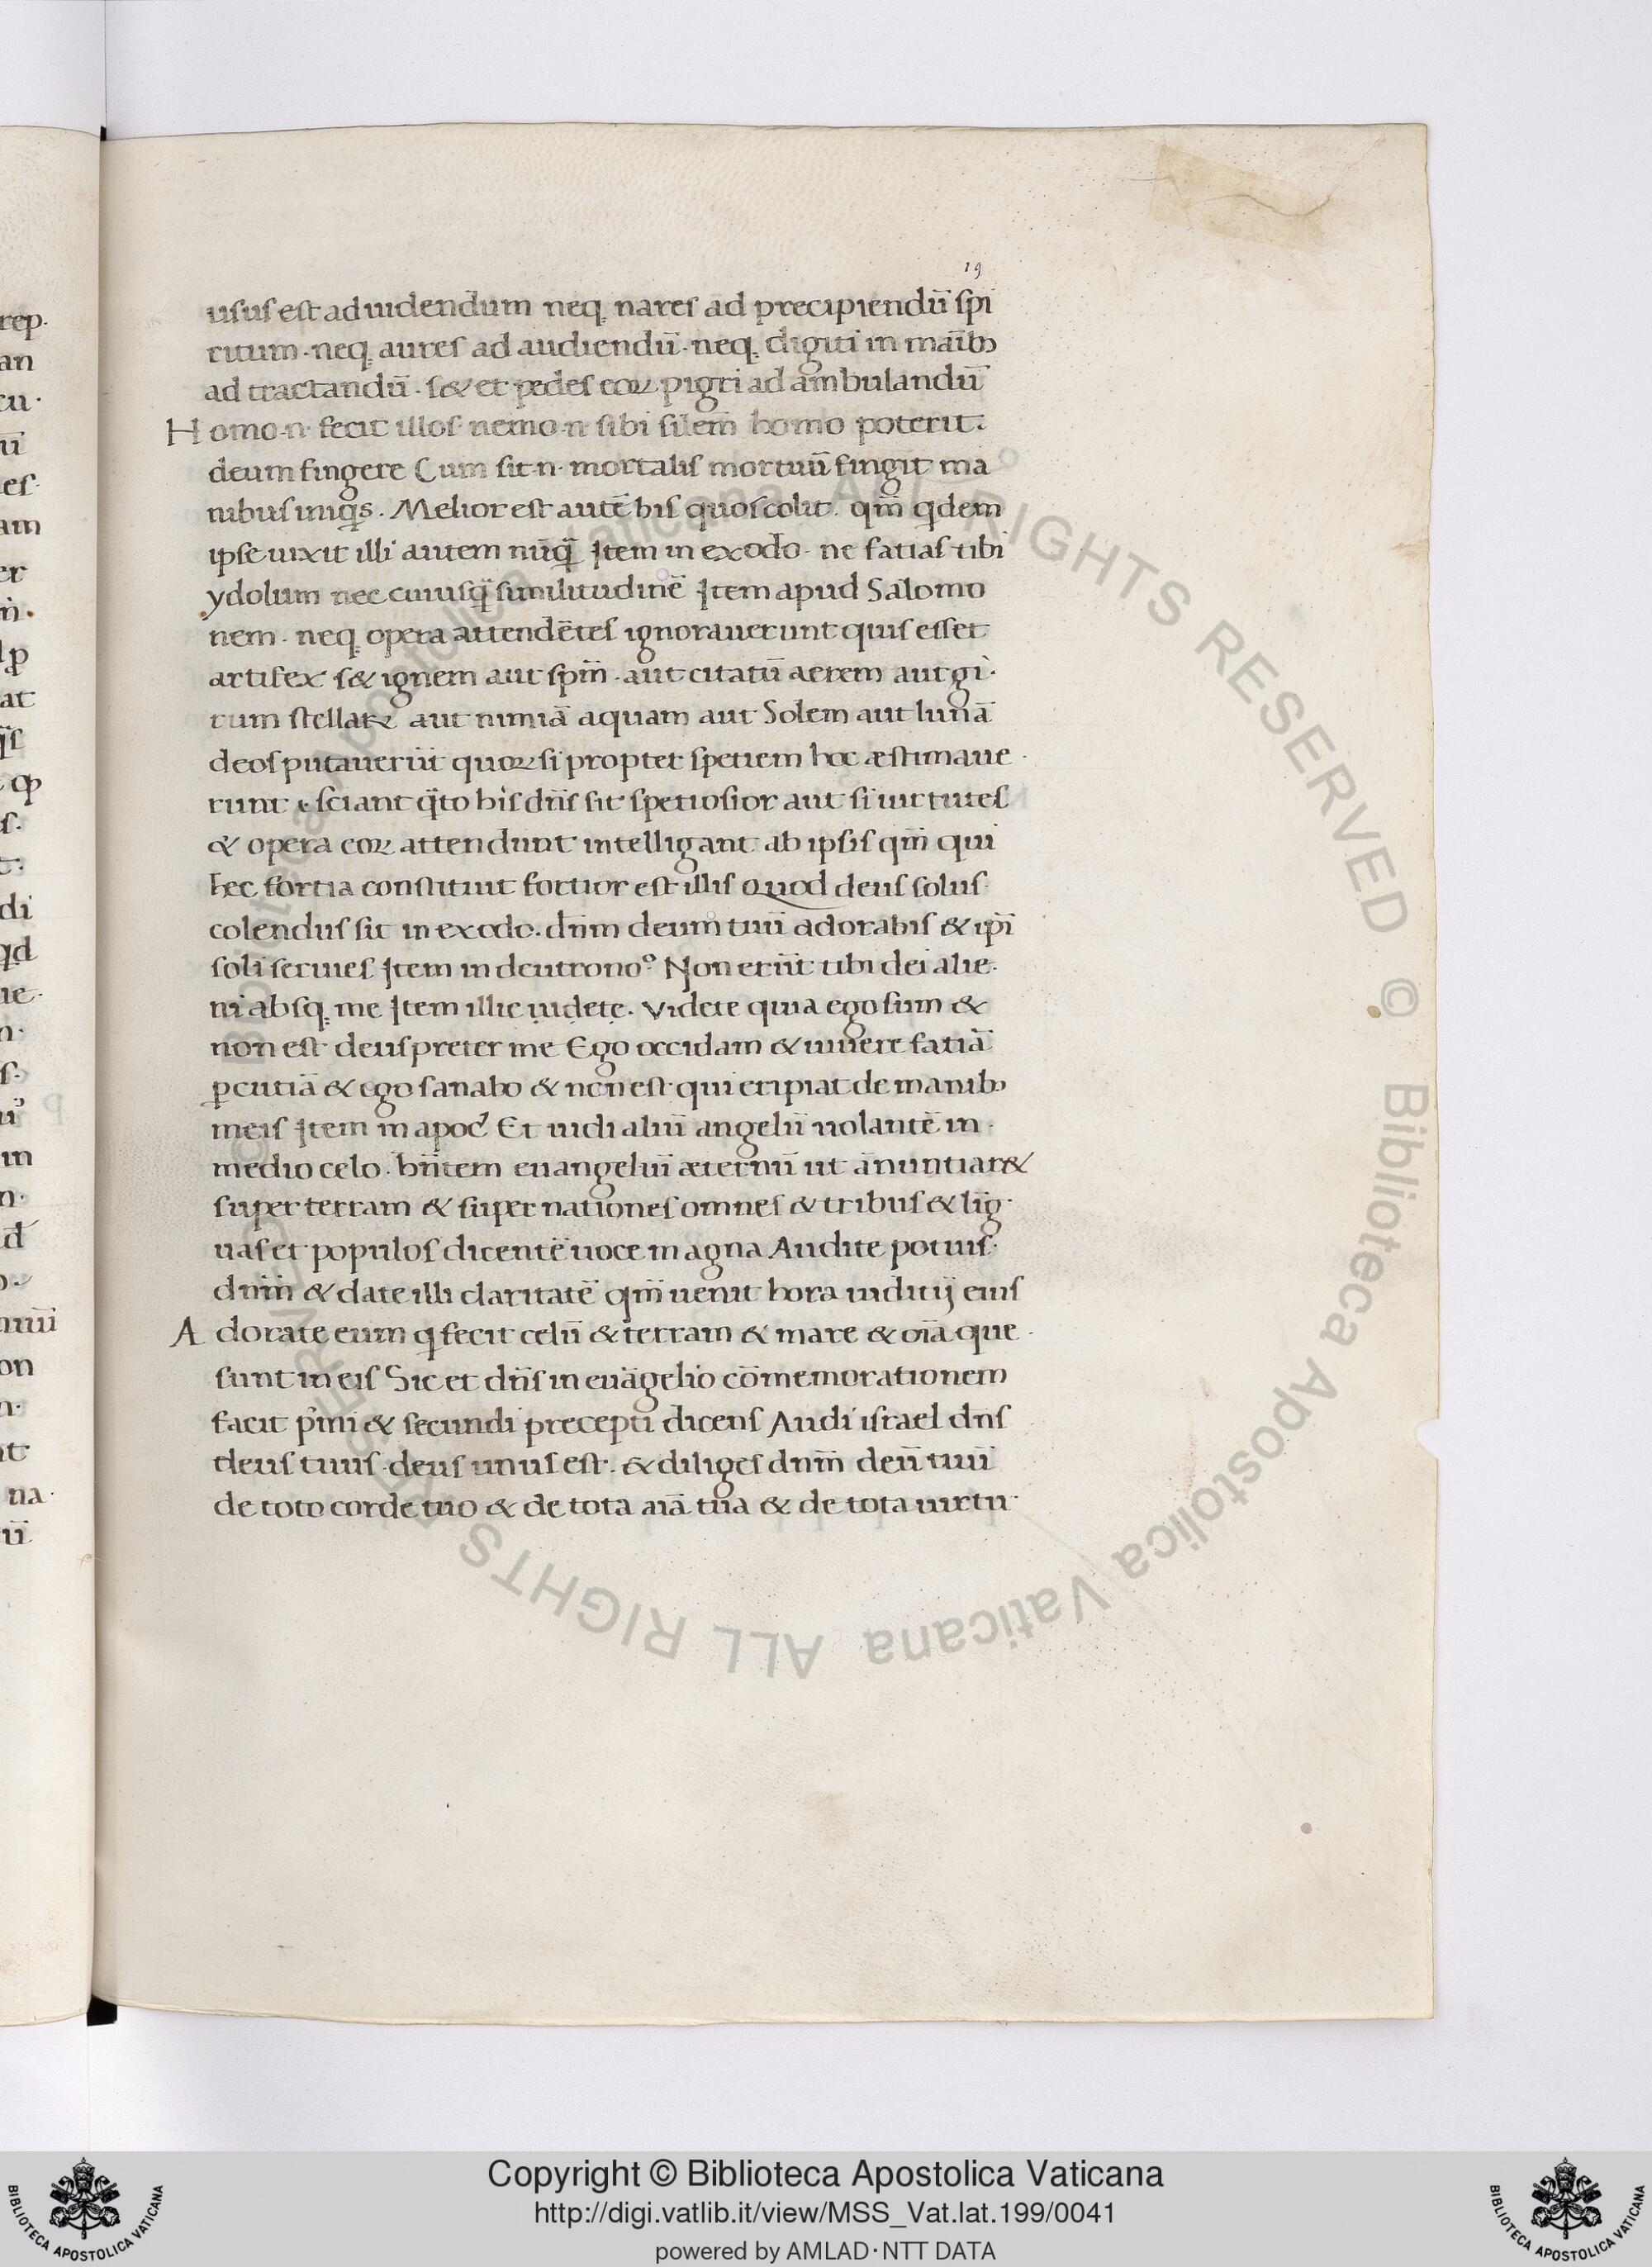 19
usus est ad uidendum neq; nares ad precipiendū spi
ritum · neq; aures ad audiendū · neq; digiti in maībꝫ
ad tractandū · s& et pedes eoꝝ pigri ad ambulandū
Homo · n · fecit illos · nemo · n · sibi silem̄ homo poterit ·
deum fingere Cum sit · n · mortalis mortuū fingit ma
nibus iniqͥs . Melior est autē his quos colit . qm̄ qͥdem
ipse uixit illi autem nūqͣ Item in exodo · ne fatias tibi
ydolum nec cuiusqͣ similitudinē Item apud Salomo
nem · neq; opera attendētes ignorauerunt quis esset
artifex s& ignem aut spm̄ · aut citatū aerem aut gi ·
rum stellaꝝ aut nimiā aquam aut Solem aut lunā
deos putauerūt quoꝝ si propter spetiem hoc æstimaue ·
runt · sciant qͣto his dn̄s sit spetiosior aut si uirtutes
& opera eoꝝ attendunt intelligant ab ipsis qm̄ qui
hec fortia constituit fortior est illis Quod deus solus
colendus sit in exodo . dn̄m deum tuū adorabis & ipī
soli seruies Item in deutronoº Non erūt tibi dei alie ·
ni absq; me Item illic uidete . Videte quia ego sum &
non est deus preter me Ego occidam & uiuere fatiā
ꝑcutiā & ego sanabo & non est qui eripiat de manibꝫ
meis Item in apoc̉ Et uidi aliū angelū uolantē in ·
medio celo . hn̄tem euangeliū æternū ut anuntiar&
super terram & super nationes omnes & tribus & lig ·
uas et populos dicentē uoce magna Audite potuis ·
dnm̄ & date illi claritatē qm̄ uenit hora iuditij eius
Adorate eum qͥ fecit celū & terram & mare & oīa que ·
sunt in eis Sic et dn̄s in euāgelio cōmemorationem
facit pͥmi & secundi precepti dicens Audi israel dn̄s
deus tuus · deus unus est . & diliges dnm̄ deū tuū
de toto corde tuo & de tota aīa tua & de tota uirtu ·
© Biblioteca Apostolica Vaticana ALL RIGHTS RESERVED © Biblioteca Apostolica Vaticana ALL RIGHTS RESERVED
Copyright © Biblioteca Apostolica Vaticana
http://digi.vatlib.it/view/MSS_Vat.lat.199/0041
powered by AMLAD·NTT DATA
BIBLIOTECA APOSTOLICA VATICANA
BIBLIOTECA APOSTOLICA VATICANA